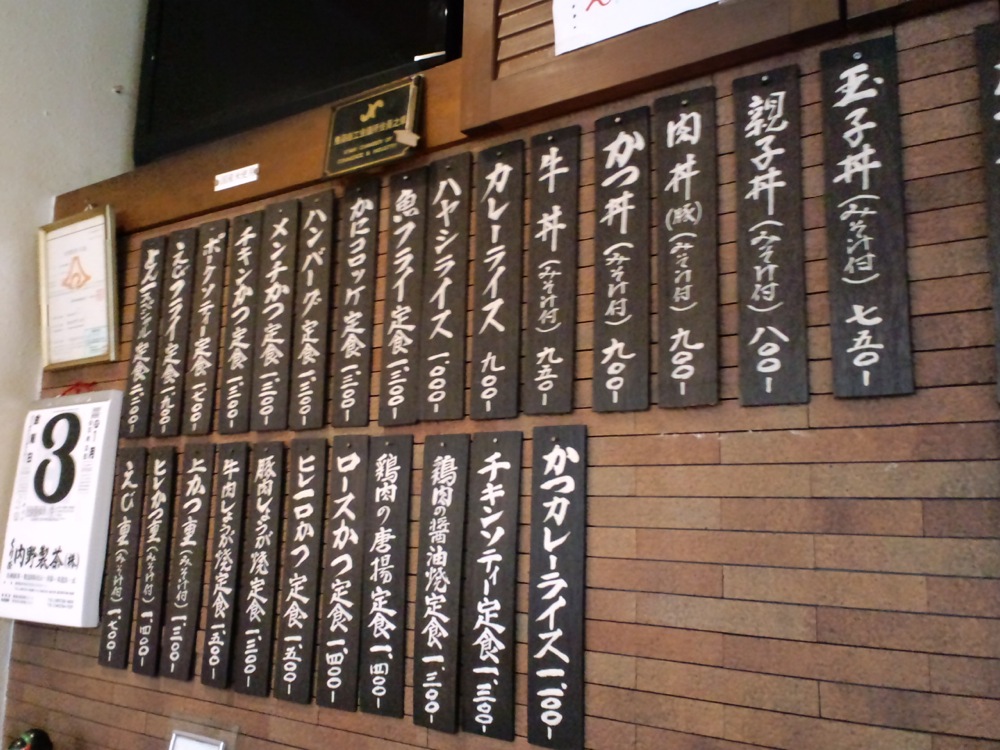 玉子丼(みそ汁付)七五〇-
親子丼(みそ汁付)八〇〇-
肉丼(豚)(みそ汁付)九〇〇-
かつ丼(みそ汁付)九〇〇-
牛丼(みそ汁付)九五〇-
カレーライス 九〇〇-
ハヤシライス 一、〇〇〇-
魚フライ定食 一、三〇〇-
かにコロッケ定食 一、三〇〇-
ハンバーグ定食 一、三〇〇-
メンチかつ定食 一、三〇〇-
チキンかつ定食 一、三〇〇-
ポークソティー定食 一、七〇〇-
えびフライ定食 一、九〇〇-
定食
かつカレーライス 一、一〇〇-
チキンソティー定食 一、三〇〇-
鶏肉の醤油焼定食 一、三〇〇-
鶏肉の唐揚定食 一、四〇〇-
ロースかつ定食 一、四〇〇-
ヒレ一口かつ定食 一、五〇〇-
豚肉しょうが焼定食 一、三〇〇-
牛肉しょうが焼定食 一、五〇〇-
上かつ重(みそ汁付)一、三〇〇-
ヒレかつ重(みそ汁付)一、四〇〇-
えび重(みそ汁付)一、七〇〇-
3
内野製茶(株)